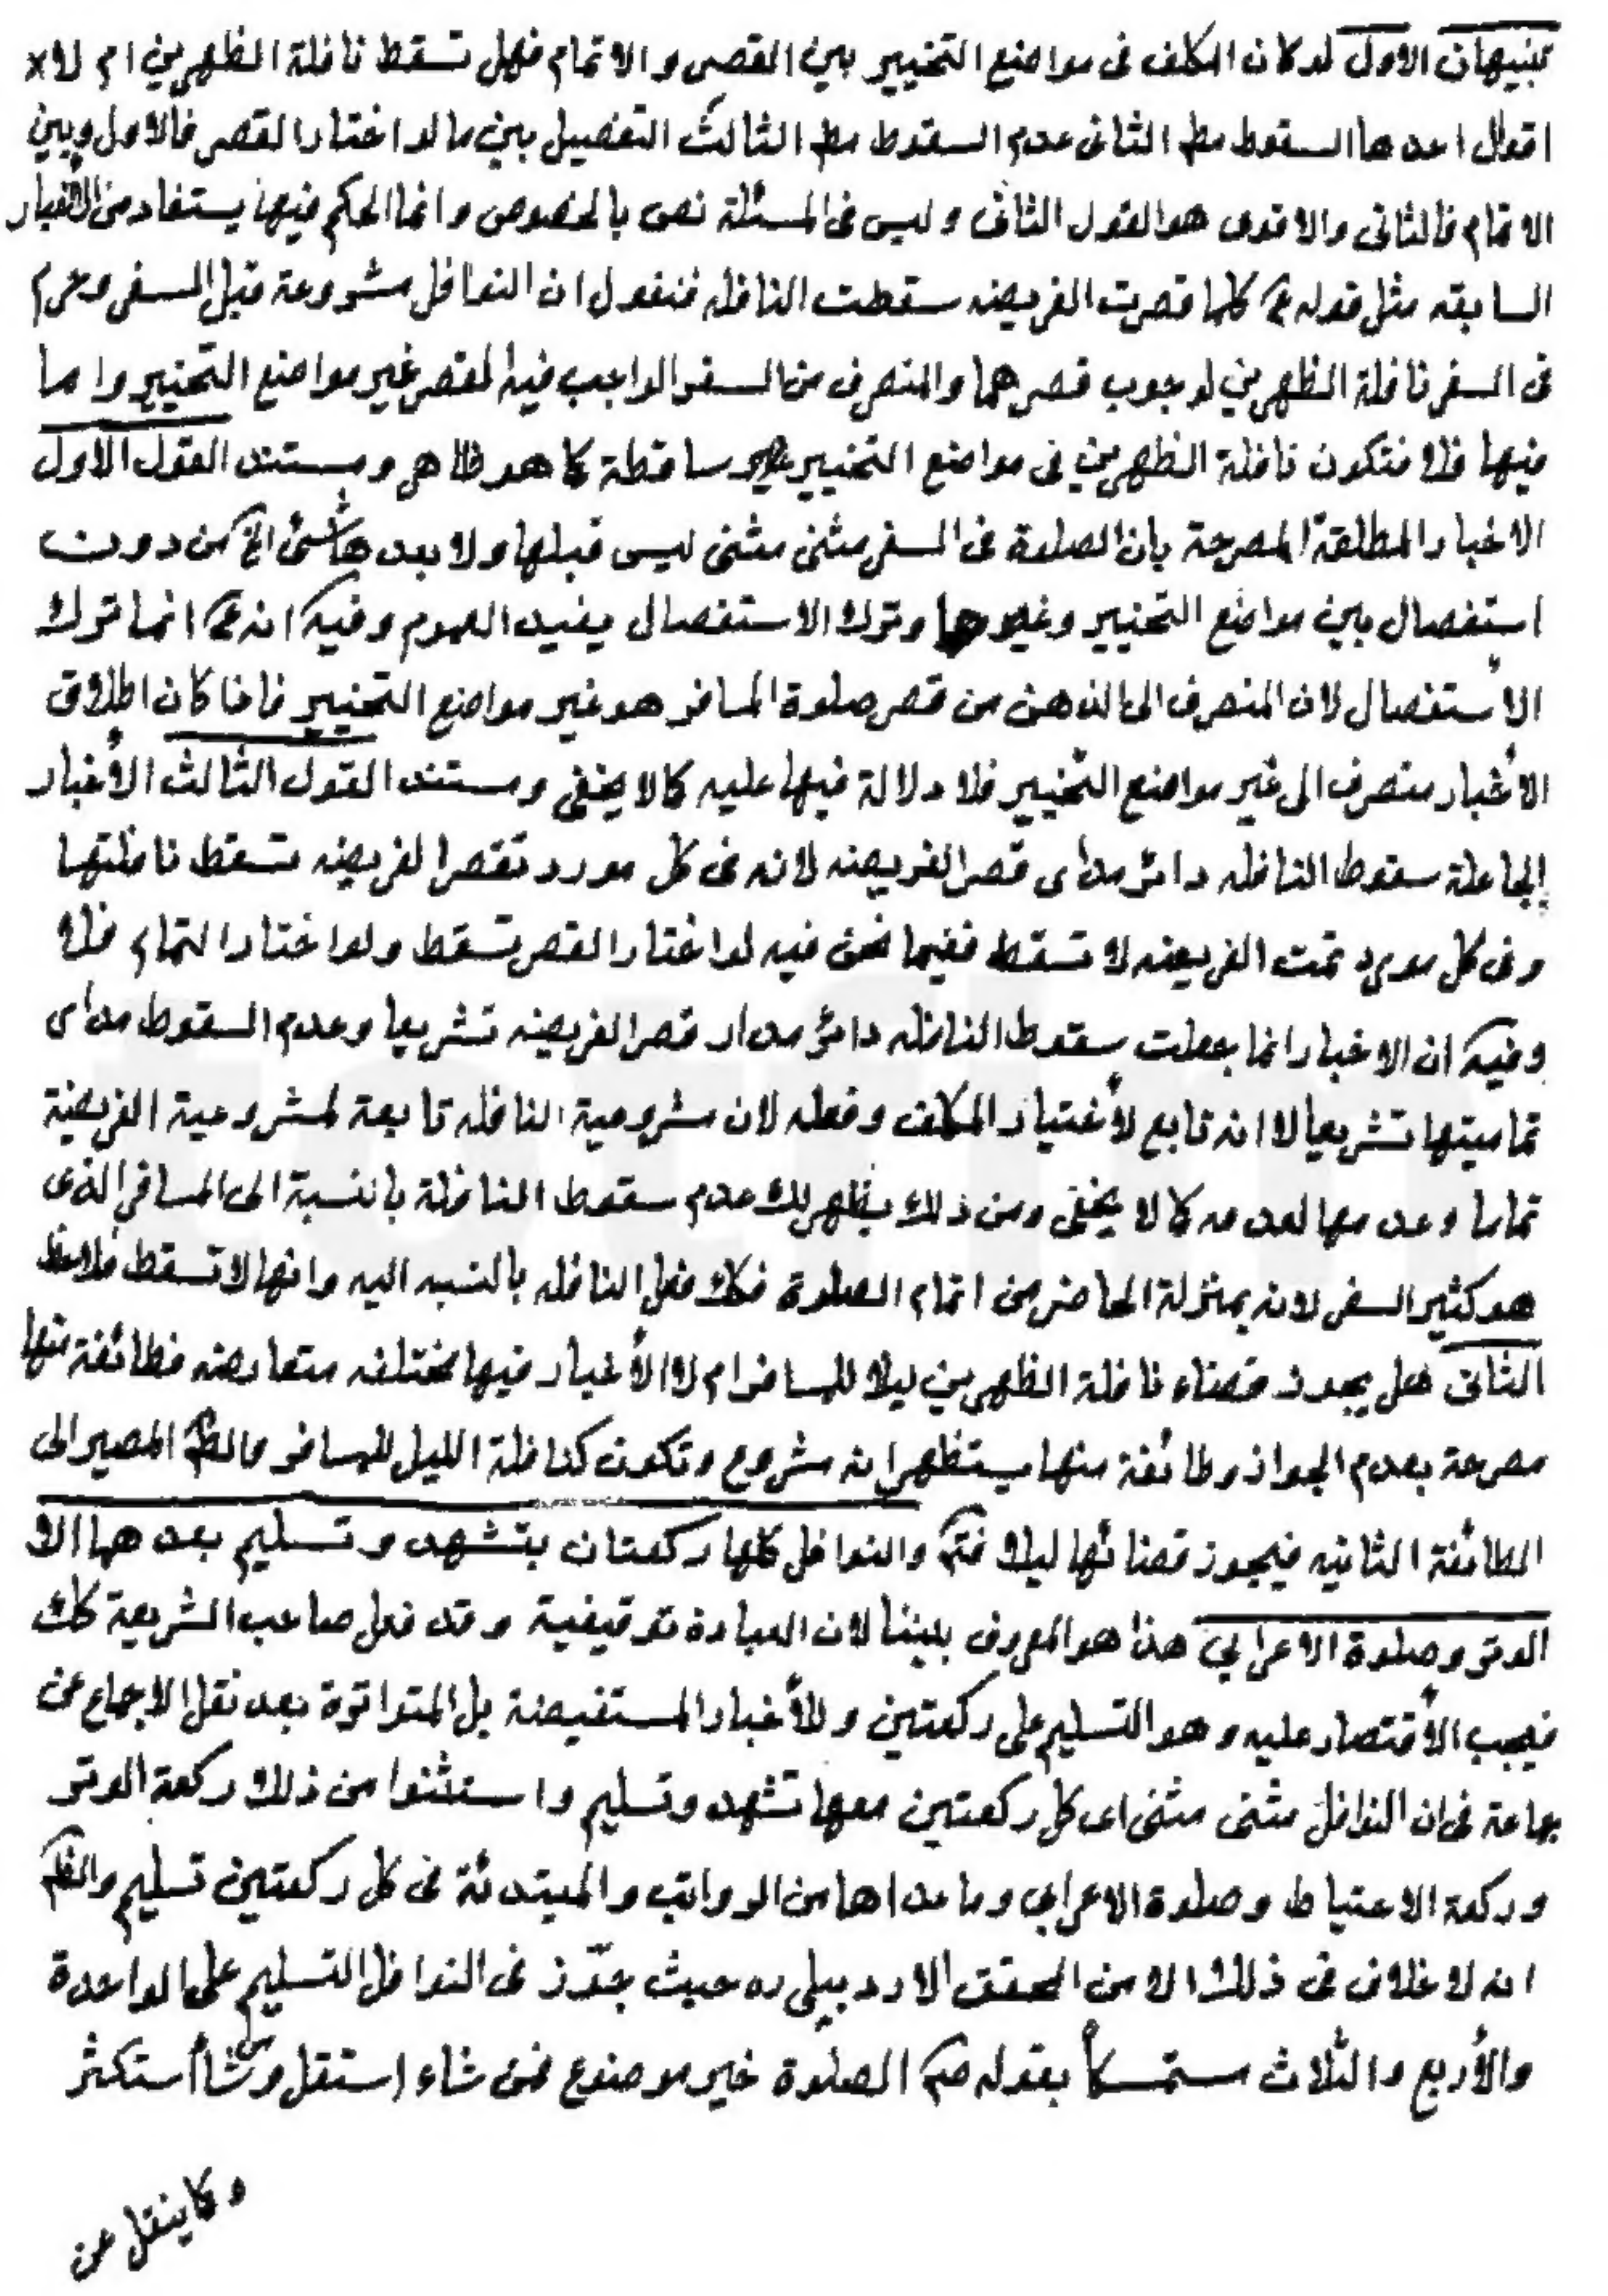 تنبيهان الاول لو كان المكلف فى مواضع التخيير بين القصر و الاتمام فهل تسقط نافلة الظهرين ام لا
اقوال احدها السقوط مط الثانى عدم السقوط مط الثالث التفصيل بين ما لو اختار القصر فالاول وبين
الاتمام فالثانى والاقوى هو القول الثانى وليس فى المسئلة نص بالخصوص وانما الحكم فيها يستفاد من الأخبار
السابقه مثل قوله ع كلما قصرت الفريضه سقطت النافله فنقول ان النوافل مشروعة قبل السفر وحرم
فى السفر نافلة الظهرين لوجوب قصرهما والمنصرف من السفر الواجب فيه القصر غير مواضع التخيير واما
فيها فلا فتكون نافلة الظهرين فى مواضع التخيير غير ساقطة كما هو ظاهر ومستند القول الاول
الاخبار المطلقة المصرحة بان الصلوة فى السفر مثنى مثنى ليس قبلها ولا بعدها شئ الخ من دون
استفصال بين مواضع التخيير وغيرها وترك الاستفصال يفيد العموم وفيه انه ع انما ترك
الأستفصال لان المنصرف الى الذهن من قصر صلوة المسافر هو غير مواضع التخيير فاذا كان اطلاق
الأخبار منصرف الى غير مواضع التخيير فلا دلالة فيها عليه كما لا يخفى ومستند القول الثالث الأخبار
الجاعلة سقوط النافله دائر مدار قصر الفريضه لانه فى كل مورد تقصر الفريضه تسقط نافلتها
وفى كل مورد تمت الفريضه لا تسقط ففيما نحن فيه لو اختار القصر تسقط ولو اختار التمام فلا
وفيه ان الاخبار انما جعلت سقوط النافله دائر مدار قصر الفريضه تشريعا وعدم السقوط مدار
تماميتها تشريعا لا انه تابع لأختيار المكلف وفعله لان مشروعية النافله تابعة لمشروعية الفريضة
تماما وعدمها لعدمه كما لا يخفى ومن ذلك يظهر لك عدم سقوط النافلة بالنسبة الى المسافر الذى
هو كثير السفر لانه بمنزلة الحاضر من اتمام الصلوة فكك فعل النافله بالنسبه اليه وانها لا تسقط فلاحظ
الثانى هل يجوز قضاء نافلة الظهرين ليلا للمسافر ام لا الأخبار فيها مختلفه متعارضه فطائفة منها
مصرحة بعدم الجواز وطائفة منها يستظهر انه مشروع وتكون كنافلة الليل للمسافر والظ المصير الى
الطائفة الثانيه فيجوز قضائها ليلا فتم والنوافل كلها ركعتان بتشهد وتسليم بعدهما الا
الوتر وصلوة الاعرابي هذا هو المعروف بيننا لان العبادة توقيفية وقد فعل صاحب الشريعة كك
فيجب الأقتصار عليه وهو التسليم على ركعتين وللأخبار المستفيضة بل المتواترة بعد نقل الاجماع عن
جماعة فى ان النوافل مثنى مثنى اى كل ركعتين معها تشهد وتسليم واستثنوا من ذلك ركعة الوتر
وركعة الاحتياط وصلوة الاعرابي وما عداها من الرواتب والمبتدئة فى كل ركعتين تسليم والظ
انه لا خلاف فى ذلك الا من المحقق الاردبيلى ره حيث جوّز فى النوافل التسليم على الواحدة
والأربع والثلاث متمسكاً بقوله ص الصلوة خير موضوع فمن شاء استقل ومن شاء استكثر
وكما ينقل عن